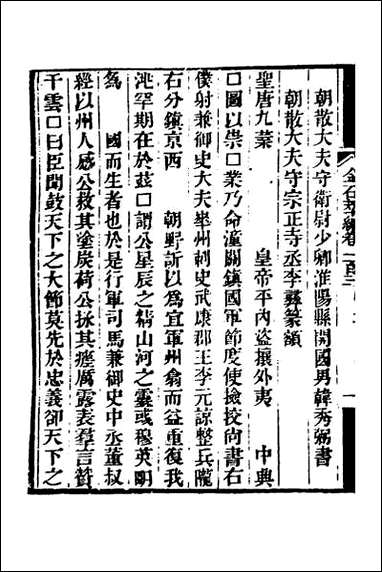 朝散大夫守衛尉少卿淮陽縣開國男韓秀弼書
朝散大夫守宗正寺丞李彝篆額
聖唐九葉 皇帝平內盜攘外夷 中典
口圖以崇口業乃命潼關鎮國軍節度使撿挍尚書右
僕射兼御史大夫華州刺史武康郡王李元諒整兵隴
右分鎮京西 朝野訢以為宜軍州翕而益重復我
洮罕期在於茲口謂公星辰之精山河之靈或穆英明
為 國而生者也於是行軍司馬兼御史中丞董叔
經以州人感公救其塗炭荷公拯其瘥厲露表羣言贊
干雲口曰臣聞鼓天下之大節莫先於忠義卻天下之
金石萃編卷一百三
一